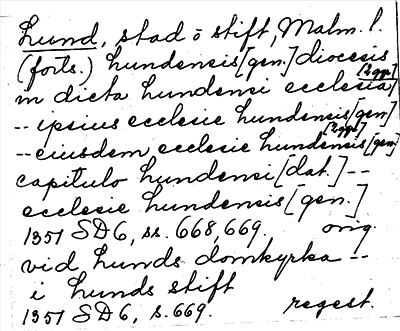 Lund, stad o stift, Malm. l.
(forts.) Lundensis [gen.] diocesis
in dicta Lundensi ecclesia [2ggr]
-- ipsius ecclesie Lundensis [gen]
-- eiusdem ecclesie Lundensis [gen] [2ggr]
capitulo Lundensi [dat.] --
ecclesie Lundensis [gen.]
1351 SD 6, ss. 668, 669. orig.
vid Lunds domkyrka --
i Lunds stift
1351 SD 6, s. 669. regest.